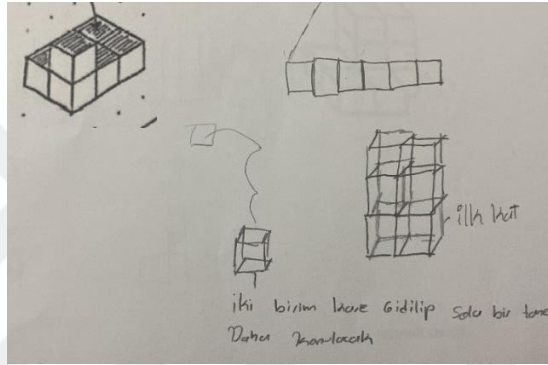 ilk kat
iki birim kare Gidilip Sola bir tane
Daha konulacak